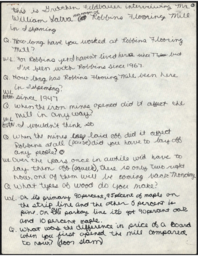 This is Graham Feldhausen interviewing Mr
William Vatra Robbins Flooring Mill
in Ishpeming
Q. How long have you worked at Robbins Flooring
Mill?
w. For Robbins
I've been with Robbins since 1967.
Q. How long has Robbins Flooring Mill been here
in Ishpeming?
w. Since, 1947
Q. When the iron mines opened did it affect the
mill in any way?
w. I wouldn't think it.
Q. When the mines lay laid off did it affect
Robbins at all did you have to lay off
any people?
w. Over the years once in awhile we'll have to
lay them off (again), there is only two right
now, one of them will be coming back Monday.
Q. What types of wood do you make?
w. Or its primary 90 percent of maple on
the strip line and the other 5 percent is
pine. On the parkay line its got 90 percent oak
and 10 percent maple.
Q. What was the difference in price of a board
when you first opened the mill compared
to now? (door slam)